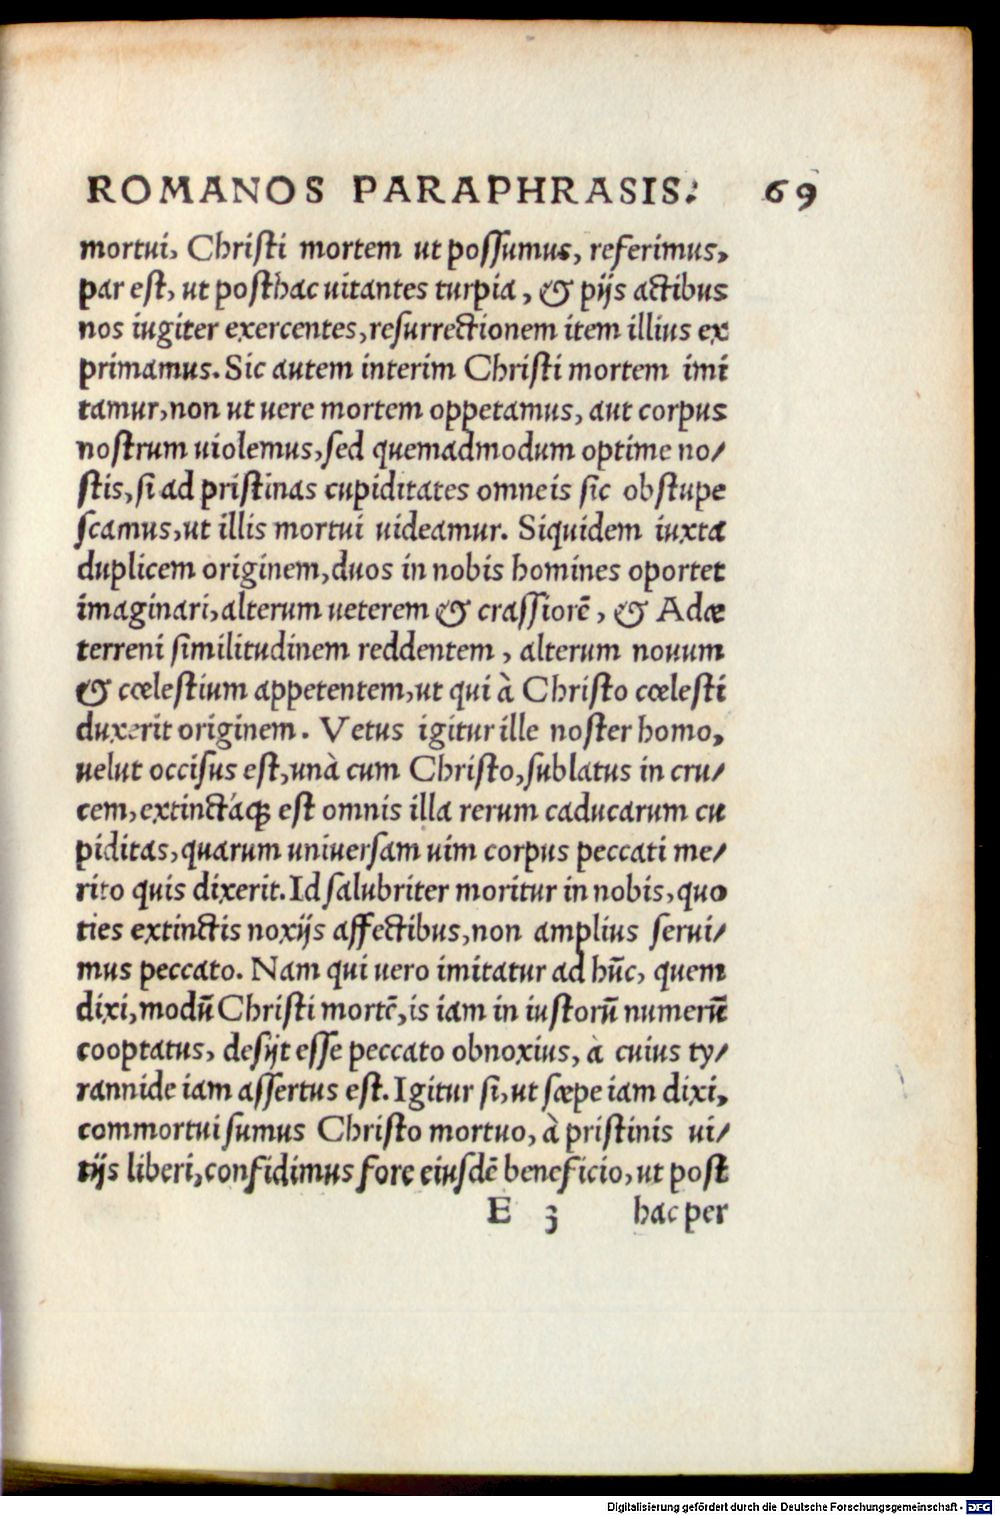 ROMANOS PARAPHRASIS. 69
mortui, Christi mortem ut possumus, referimus,
par est, ut posthac uitantes turpia, & pijs actibus
nos iugiter exercentes, resurrectionem item illius ex
primamus. Sic autem interim Christi mortem imi
tamur, non ut uere mortem oppetamus, aut corpus
nostrum uiolemus, sed quemadmodum optime no/
stis, si ad pristinas cupiditates omneis sic obstupe
scamus, ut illis mortui uideamur. Siquidem iuxta
duplicem originem, duos in nobis homines oportet
imaginari, alterum ueterem & crassiorē, & Adæ
terreni similitudinem reddentem, alterum nouum
& cœlestium appetentem, ut qui à Christo cœlesti
duxerit originem. Vetus igitur ille noster homo,
uelut occisus est, unà cum Christo, sublatus in cru/
cem, extinctáq; est omnis illa rerum caducarum cu
piditas, quarum uniuersam uim corpus peccati me/
rito quis dixerit. Id salubriter moritur in nobis, quo
ties extinctis noxijs affectibus, non amplius serui/
mus peccato. Nam qui uero imitatur ad hūc, quem
dixi, modū Christi mortē, is iam in iustorū numerū
cooptatus, desijt esse peccato obnoxius, à cuius ty/
rannide iam assertus est. Igitur si, ut sæpe iam dixi,
commortui sumus Christo mortuo, à pristinis ui/
tijs liberi, confidimus fore eiusdē beneficio, ut post
E 3 hac per
Digitalisierung gefördert durch die Deutsche Forschungsgemeinschaft - DFG